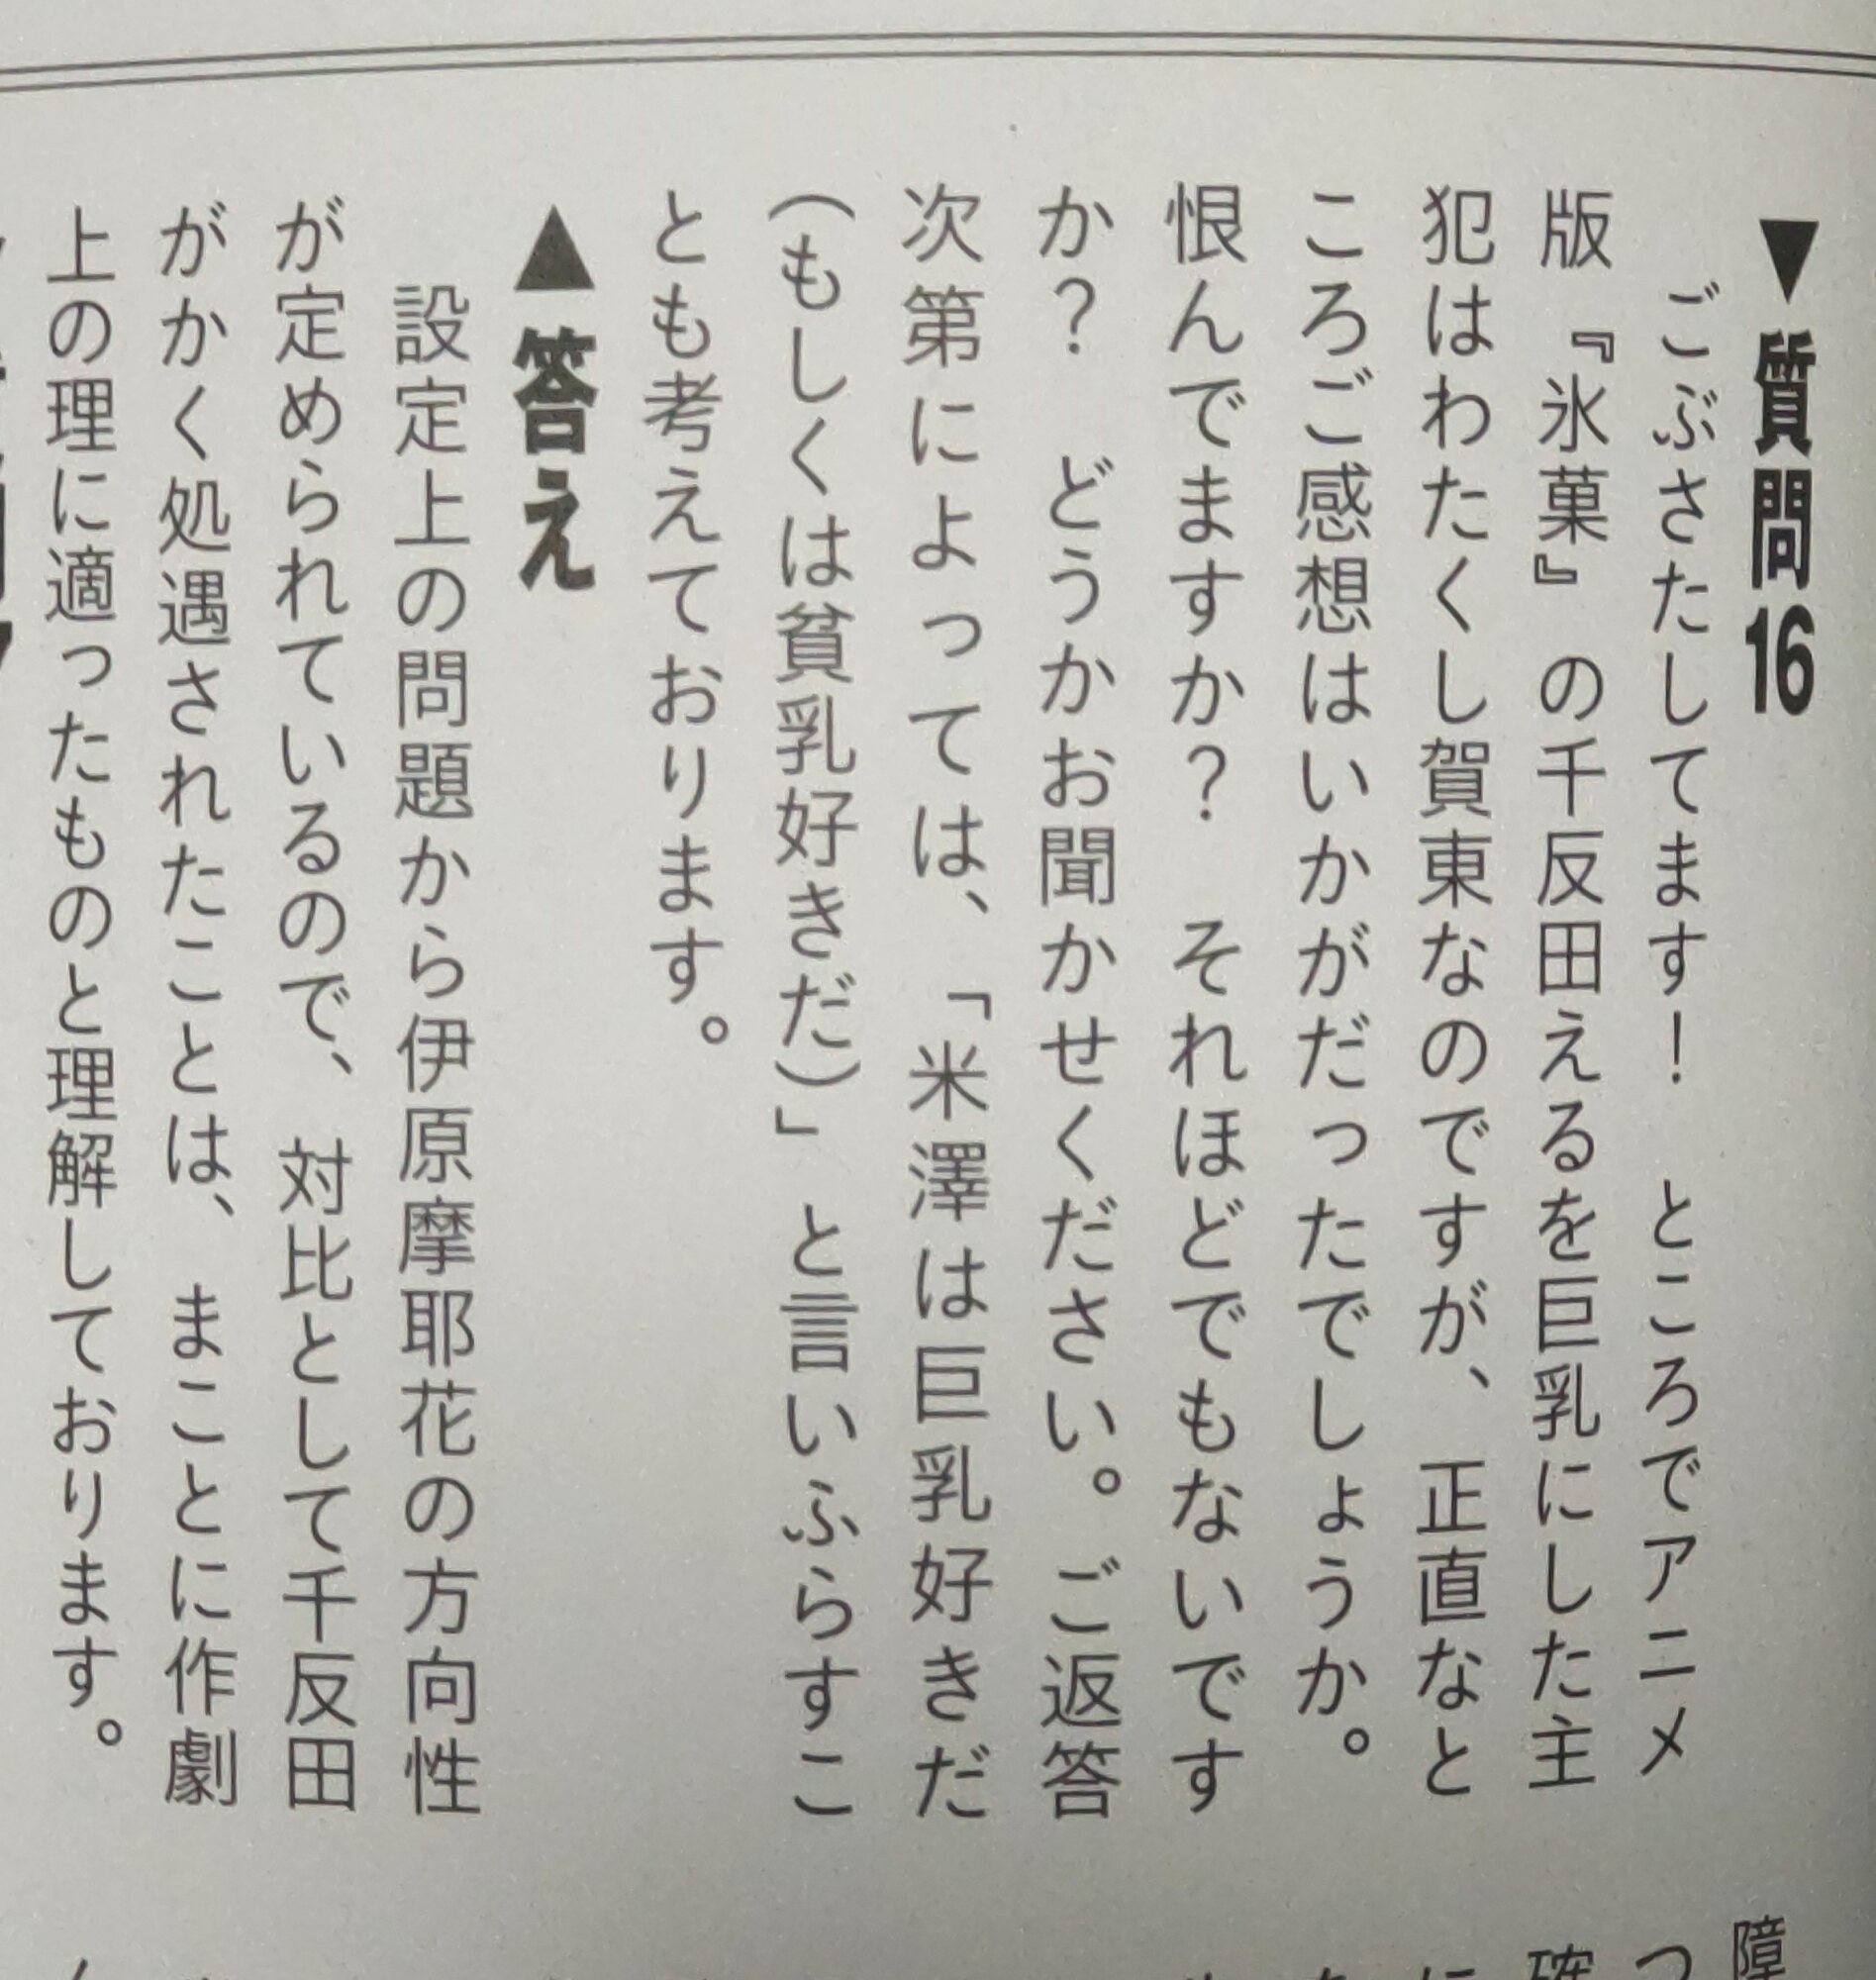 ▼質問16
ごぶさたしてます！　ところでアニメ
版『氷菓』の千反田えるを巨乳にした主
犯はわたくし賀東なのですが、正直なと
ころご感想はいかがだったでしょうか。
恨んでますか？　それほどでもないです
か？　どうかお聞かせください。ご返答
次第によっては、「米澤は巨乳好きだ
（もしくは貧乳好きだ）」と言いふらすこ
とも考えております。
▲答え
設定上の問題から伊原摩耶花の方向性
が定められているので、対比として千反田
がかく処遇されたことは、まことに作劇
上の理に適ったものと理解しております。
障
つ
確
に